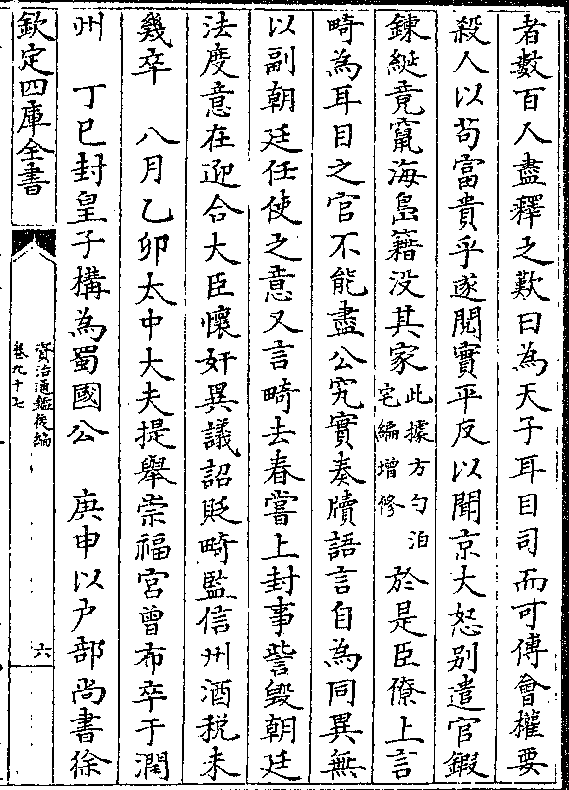 者數百人盡釋之歎曰為天子耳目司而可傅會權要
殺人以苟富貴乎遂閱實平反以聞京大怒别遣官鍜
鍊綖竟竄海島籍没其家此據方勺泊宅編增修於是臣僚上言
畸為耳目之官不能盡公究實奏牘語言自為同異無
以副朝廷任使之意又言畸去春嘗上封事訾毀朝廷
法度意在迎合大臣懷奸異議詔貶畸監信州酒税未
幾卒　八月乙卯太中大夫提舉崇福宮曾布卒于潤
州　丁巳封皇子構為蜀國公　庚申以户部尚書徐
欽定四庫全書
資治通鑑後編
卷九十七
六